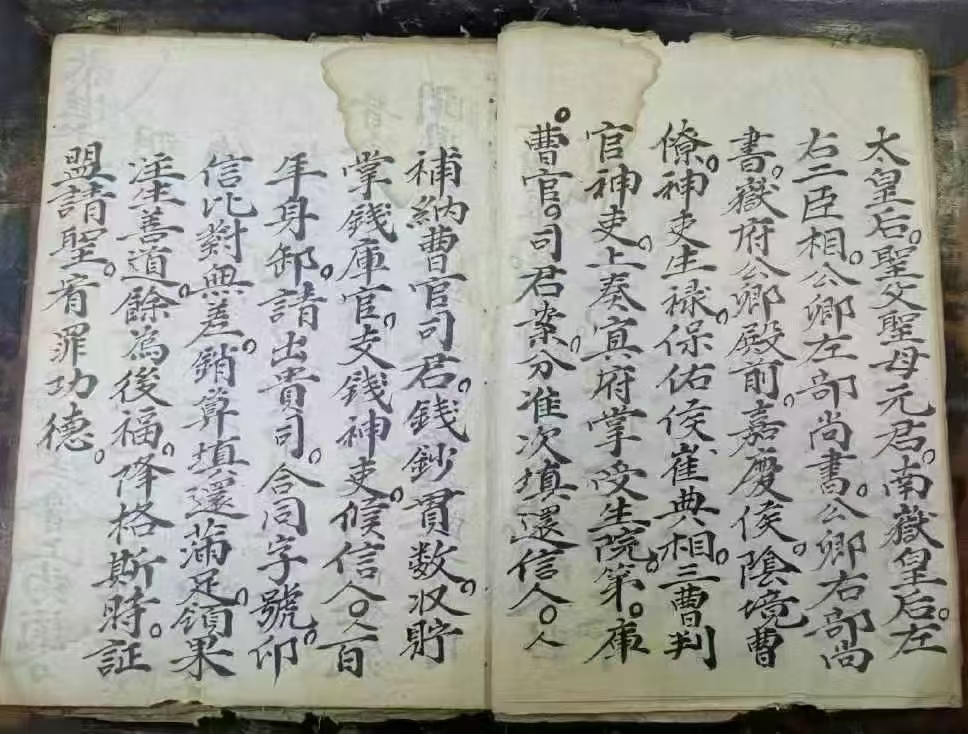 太皇后。聖父聖母元君。南嶽皇后。左
右二臣相。公卿左部尚書。公卿右部尚
書。嶽府公卿殿前。嘉慶侯。陰境曹
僚。神吏生祿。保佑侯崔典相。三曹判
官神吏。上奏㝠府掌受生院。第。庫
。曹官。司君案分准次填還信人。人
補納曹官司君。錢鈔貫数。収貯
掌錢庫官。支錢神吏。候信人。人百
年身卸。請出貴司。合同字號。卬
信比對無差。銷算填還滿足。領果
徃生善道。餘為後福。降格斯時。証
盟請聖。宥罪功德。